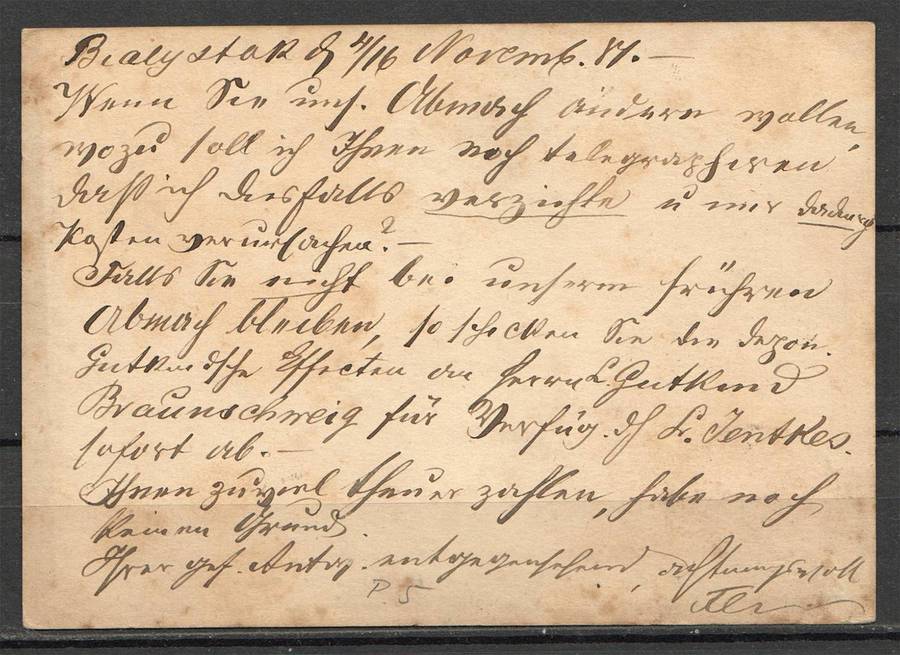 Bialystok d 4/16 Novemb. 87. —
Wenn Sie uns. Abmach ändern wollen,
wozu soll ich Ihnen noch telegraphiren
daß ich diesfalls verzichte u mir dadurch
Kosten verursachen? —
Falls Sie nicht bei unserm frühren
Abmach bleiben, so schicken Sie die depon.
Gutkindsche Effecten an Herrn L. Gutkind
Braunschweig für Verfüg. d H L. Jentkes.
sofort ab. —
Ihnen zuviel theuer zahlen, habe noch
keinen Grund.
Ihrer gef. Antw. entgegensehend, achtungsvoll
P. 5